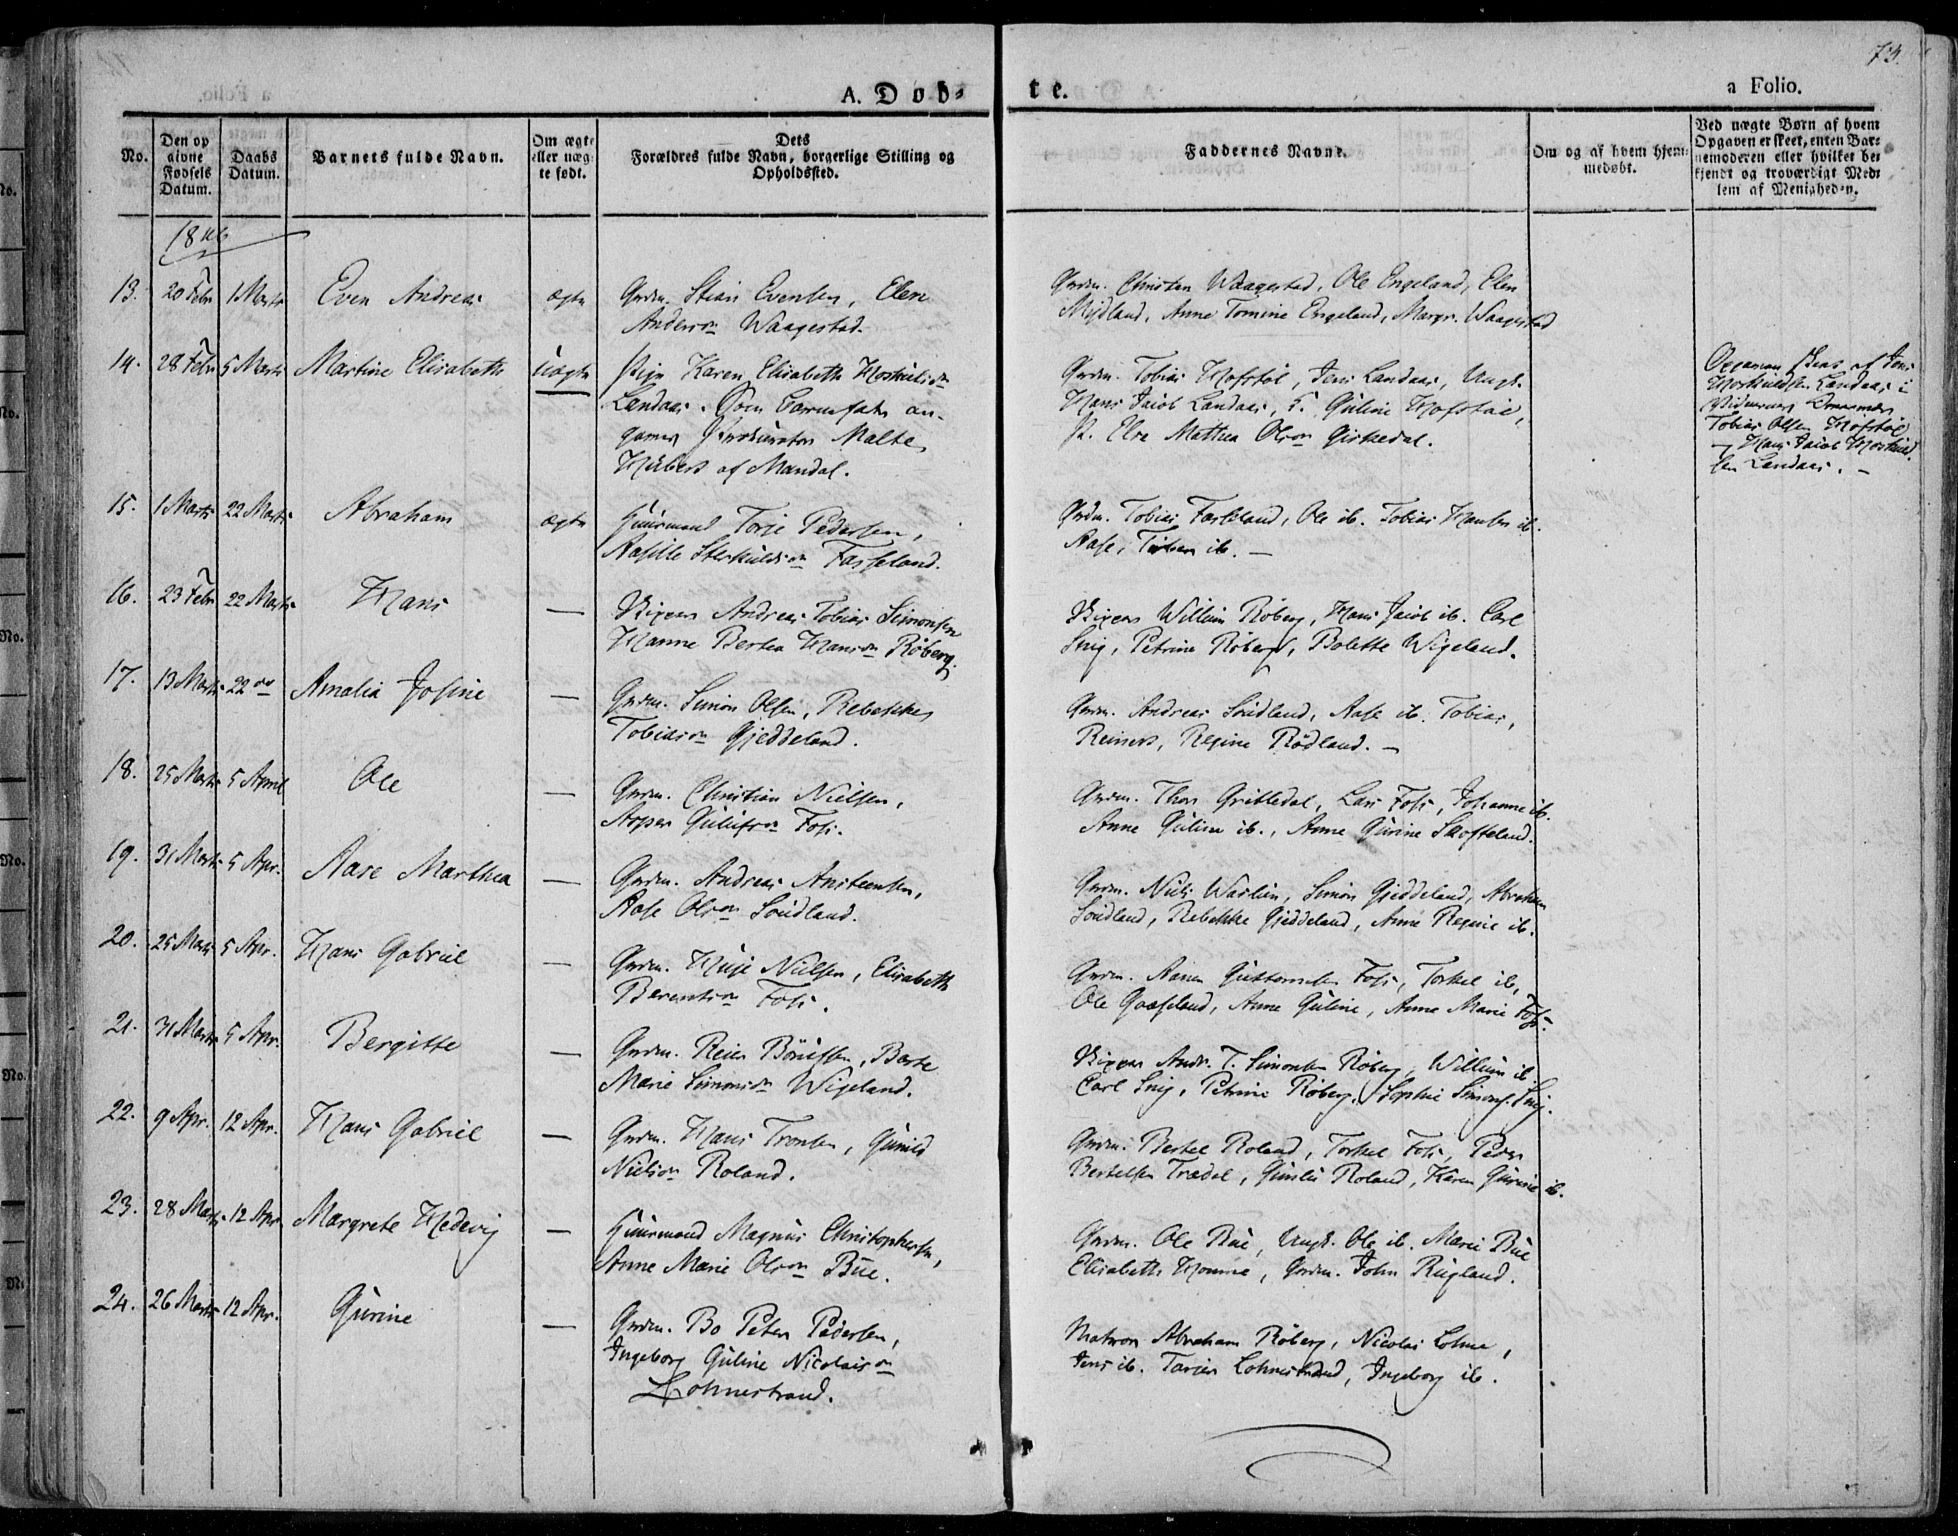 A. Døb-
te.
73.
a Folio.
No.
Den opgivne Fødsels Datum.
Daabs Datum.
Barnets fulde Navn.
Om ægte eller uægte født.
Dets Forældres fulde Navn, borgerlige Stilling og Opholdssted.
Faddernes Navne.
Om og af hvem hjemmedøbt.
Ved uægte Børn af hvem Opgaven er skeet, enten Barnemoderen eller hvilket bekjendt og troværdigt Medlem af Menigheden.
1846
13. 20 Febr 1 Marts Even Andreas ægte Grdm. Stian Evensen, Elen
Andersn Waagestad.
Grdm. Christen Waagestad, Ole Engeland, Elen
Mydland, Anne Tomine Engeland, Margr. Waagestad
14. 28 Febr 5 Marts Martine Elisabeth uægte Pige Karen Elisabeth
Landaas. Som Barnefader an-
gaves Prokurator Malte
af Mandal.
Grdm. Tobias Hofstøl, Jens Landaas, Ungk.
Hans Jacob Landaas, Guline Hofstøl,
P. Else Mathea Olsn
Opgaven skeet af Jens
Landaas i
Tobias Olsen Hofstøl
Hans Jacob
Landaas. –
15. 1 Marts 22 Marts Abraham ægte Huusmand Torje Pedersen,
Fasseland.
Grdm. Tobias Fasseland, Ole ib. Tobias ib.
Aase, ib. –
16. 23 Febr 22 Marts Hans — Andreas Tobias Simonsen
Hanne Bertea Hansn Røberg.
Willum Røberg, Hans Jacob ib. Carl
Snig, Petrine Røberg, Bolette Wigeland.
17. 13 Marts 22 do Amalia Josine — Grdm. Simon Olsen, Rebekka
Tobiasn Gjeddeland.
Grdm. Andreas Soudland, Aase ib. Tobias,
Reinert, Regine Rødland. –
18. 25 Marts 5 April Ole — Grdm. Christian Nielsen,
Foss.
Grdm. Thor Gribledal, Lars Foss, Johanne ib.
Anne Guline ib., Anne Gurine Skofteland.
19. 31 Marts 5 Apr. Aase Marthea — Grdm. Andreas Anstensen,
Aase Olsn Soudland.
Grdm. Niels Simon Gjeddeland, Abraham
Soudland, Rebekke Gjeddeland, Anne Regine ib.
20. 25 Marts 5 Apr. Hans Gabriel — Grdm. Nielsen, Elisabeth
Berentsn Foss.
Grdm. Aanen Guttormsen Foss, Torkel ib,
Ole Gaaseland, Anne Guline, Anne Marie Foss.
21. 31 Marts 5 Apr. Bergitte — Grdm. Reier Berte
Marie Simonsn Wigeland.
Andr. T. Simonsen Røberg, Willum ib
Carl Snig, Petrine Røberg, Sophie Simons. Snig.
22. 9 Apr. 12 Apr. Hans Gabriel — Grdm. Hans Tronsen, Gunild
Nielsn Roland.
Grdm. Bertel Roland, Torkel Foss, Peder
Bertelsen Trædal, Roland, Karen Gurine ib.
23. 28 Marts 12 Apr Margrete Hedevig — Huusmand Magnus Christophersen,
Anne Marie Olsn Bue.
Grdm. Ole Bue, Ungk. Ole ib. Marie Bue
Elisabeth Homme, Grdm. John Rugland.
24. 26 Marts 12 Apr. Gurine — Grdm. Bo Peter Pedersen,
Ingeborg Guline Nicolaisn
Lohnestrand.
Matros Abraham Røberg, Nicolai Lohne,
Jens ib. Tarjer Lohnestrand, Ingeborg ib.